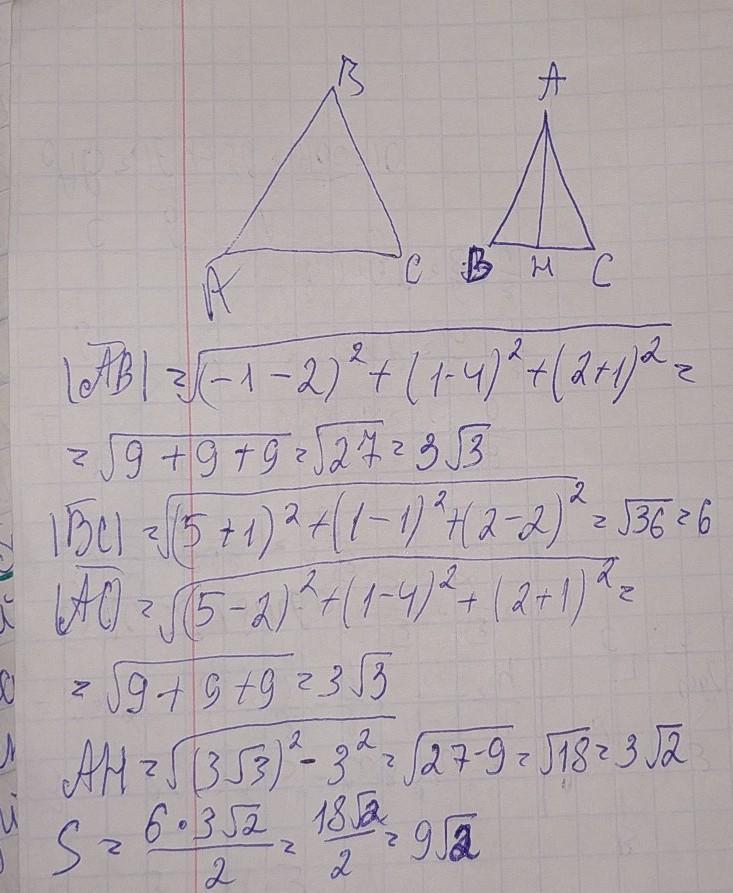 B
A
A C
B H C
|AB| = √(-1-2)² + (1-4)² + (2+1)² =
= √9+9+9 = √27 = 3√3
|BC| = √(5+1)² + (1-1)² + (2-2)² = √36 = 6
|AC| = √(5-2)² + (1-4)² + (2+1)² =
= √9+9+9 = 3√3
AH = √(3√3)² - 3² = √27-9 = √18 = 3√2
S = 6·3√2/2 = 18√2/2 = 9√2